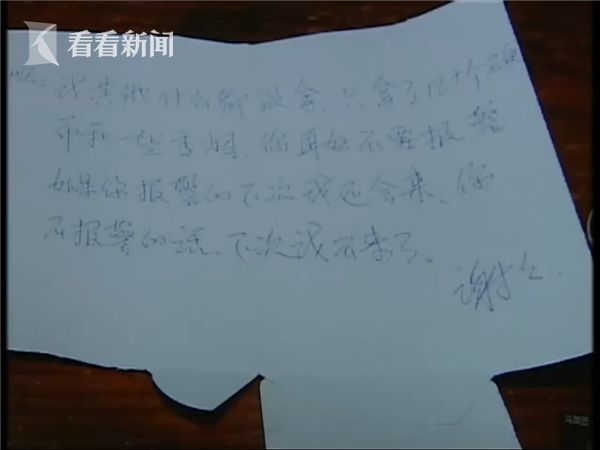 看看新闻
我其他什么都没拿，只拿了几十个硬
币和一些香烟，你再好不要报警
如果你报警的下次我还会来、你
不报警的话、下次我不来了。
谢谢.